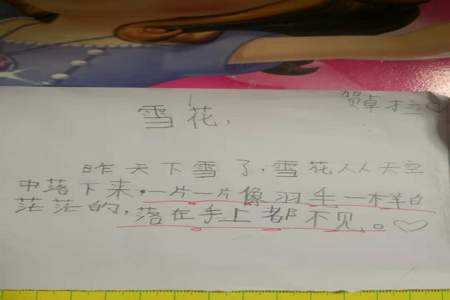 贺卓才
雪花,
昨天下雪了.雪花人人天空
中落下来,一片一片像羽毛一样白
茫茫的,落在手上都不见。